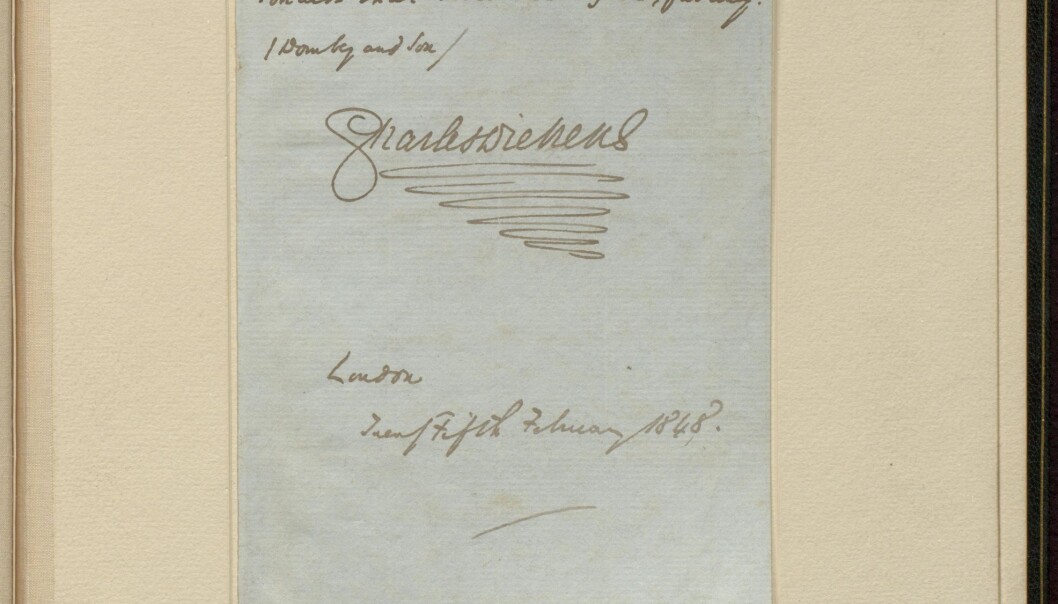 (Dombey and Son)
Charles Dickens
London
Twenty Fifth February 1848.